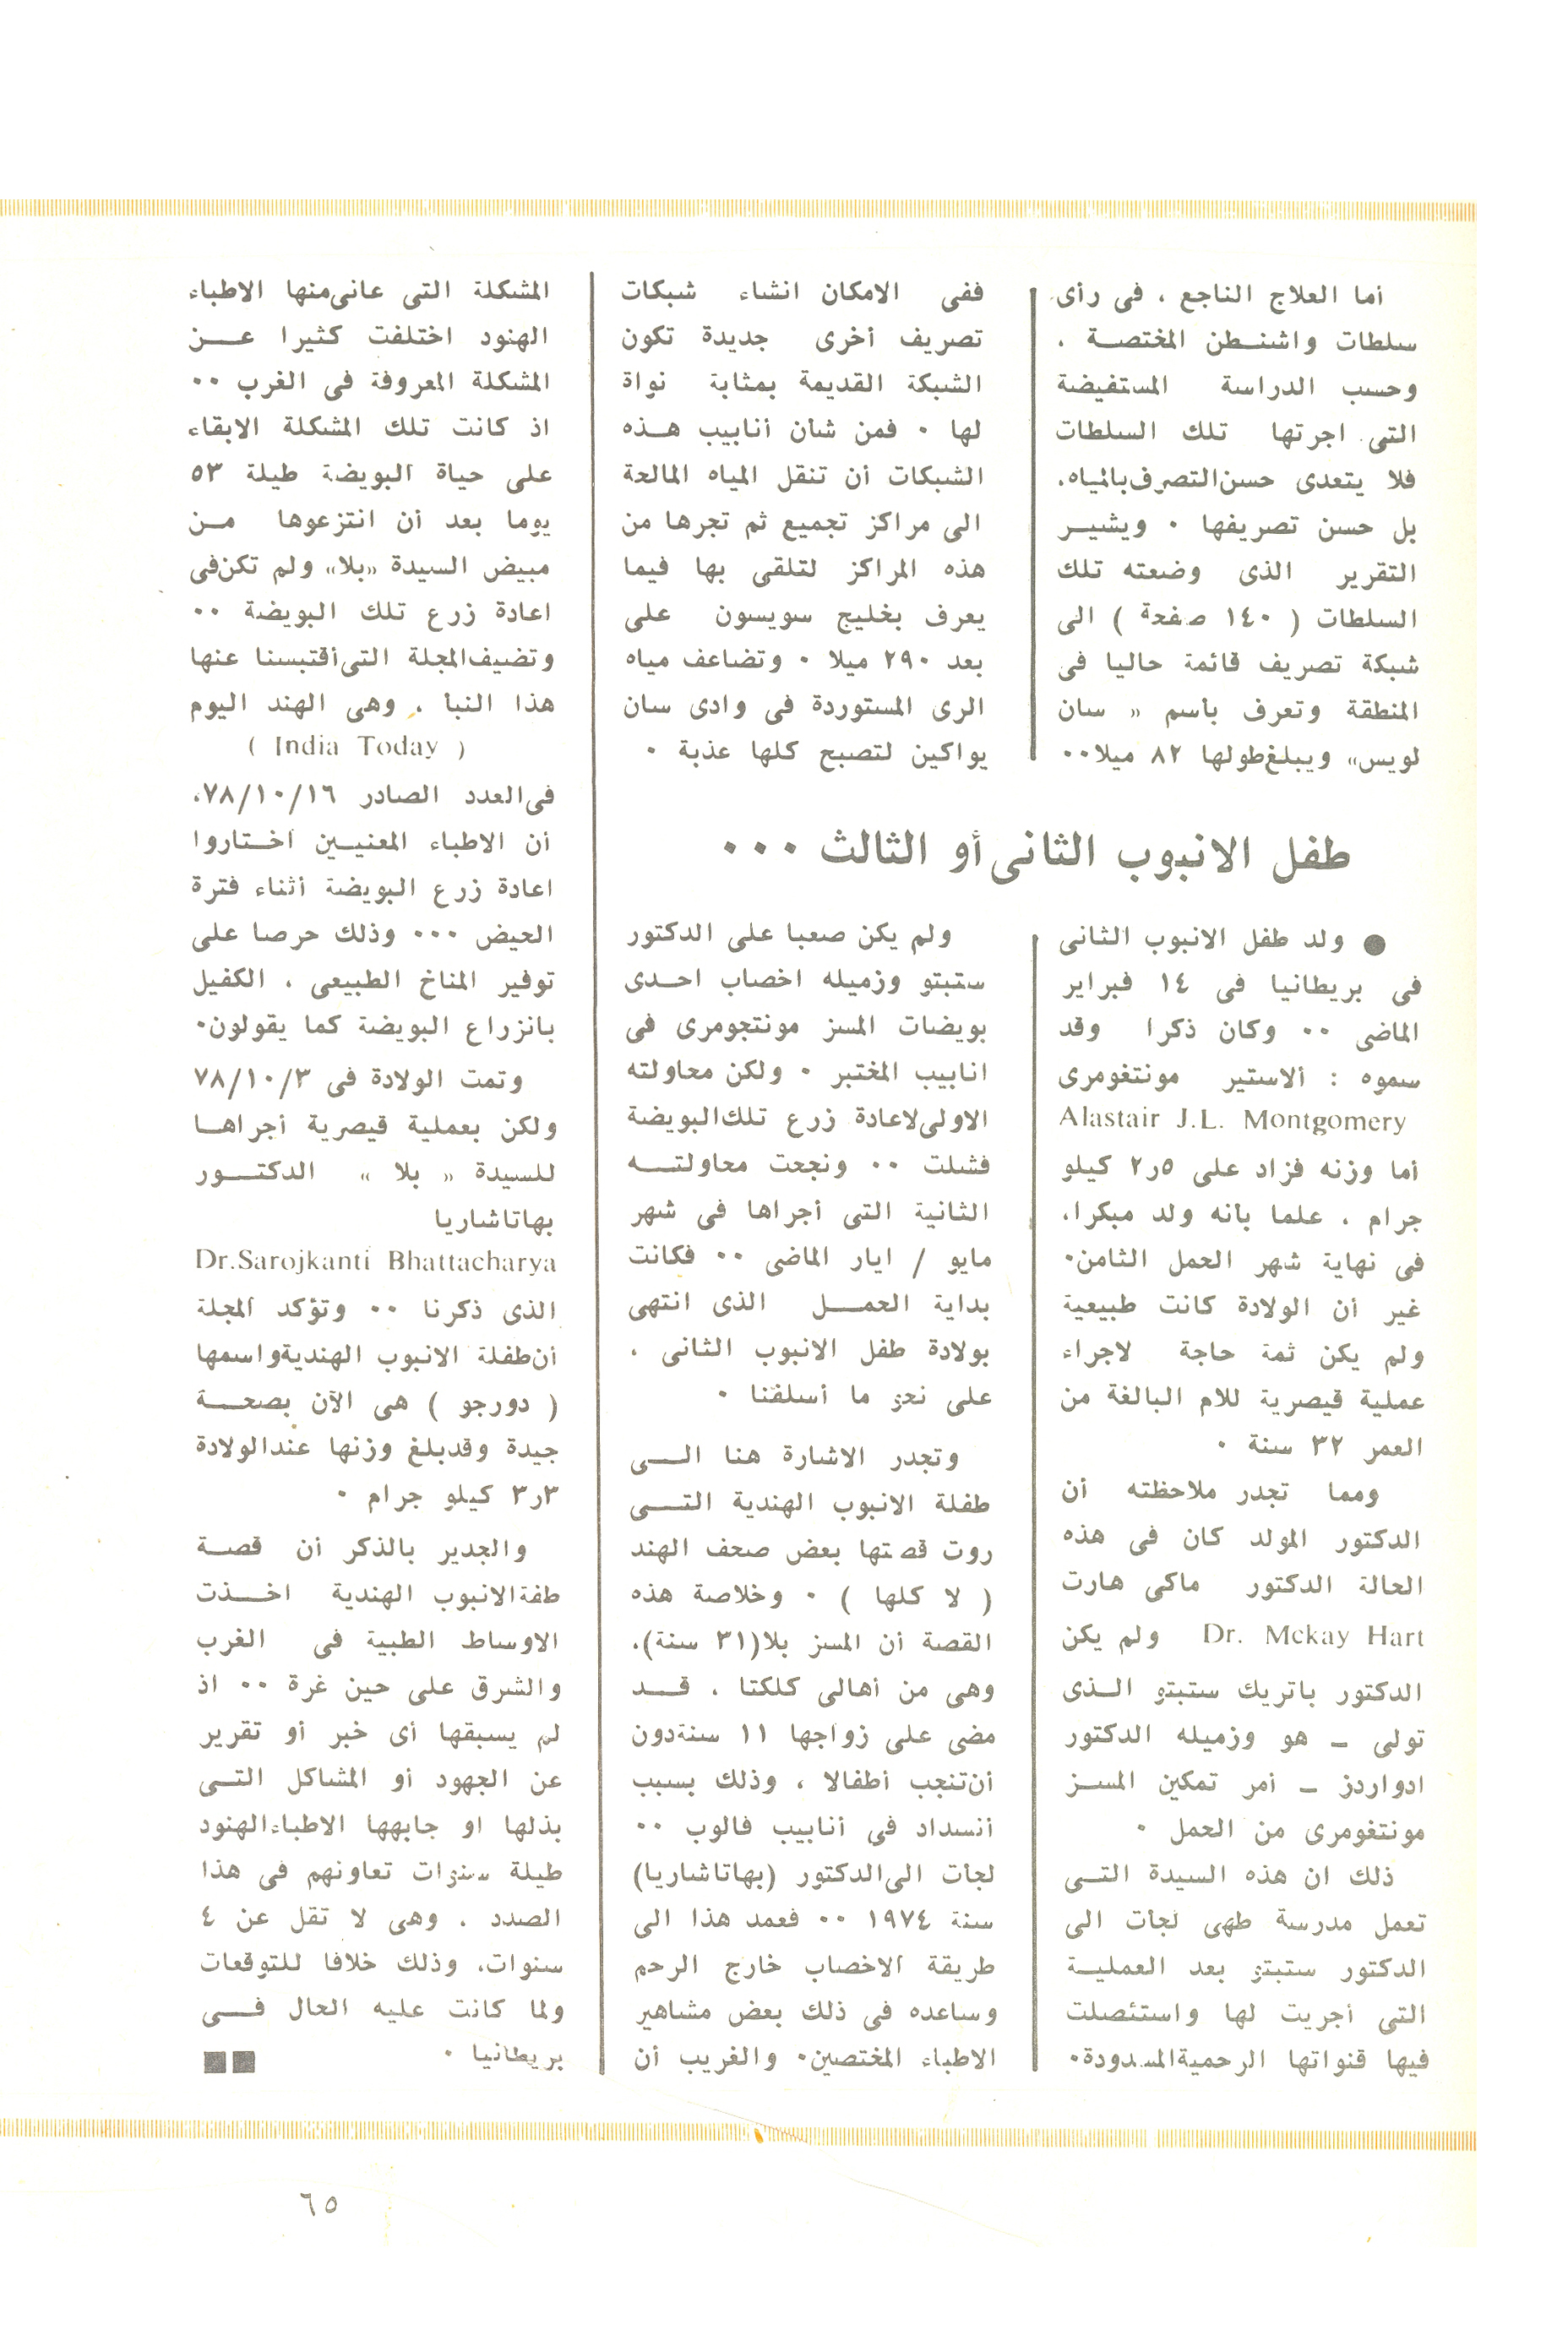 أما العلاج الناجع ، فى رأى
سلطات واشنطن المختصة ،
وحسب الدراسة المستفيضة
التى اجرتها تلك السلطات
فلا يتعدى حسن التصرف بالمياه،
بل حسن تصريفها ٠ ويشير
التقرير الذى وضعته تلك
السلطات ( ١٤٠ صفحة ) الى
شبكة تصريف قائمة حاليا فى
المنطقة وتعرف بأسم « سان
لويس» ويبلغ طولها ٨٢ ميلا٠٠
ففى الامكان انشاء شبكات
تصريف أخرى جديدة تكون
الشبكة القديمة بمثابة نواة
لها ٠ فمن شأن أنابيب هذه
الشبكات أن تنقل المياه المالحة
الى مراكز تجميع ثم تجرها من
هذه المراكز لتلقى بها فيما
يعرف بخليج سويسون على
بعد ٢٩٠ ميلا ٠ وتضاعف مياه
الرى المستوردة فى وادى سان
يواكين لتصبح كلها عذبة ٠
طفل الانبوب الثانى أو الثالث ٠٠٠
● ولد طفل الانبوب الثانى
فى بريطانيا فى ١٤ فبراير
الماضى ٠٠ وكان ذكرا وقد
سموه : ألاستير مونتغومرى
Alastair J.L. Montgomery
أما وزنه فزاد على ٢ر٥ كيلو
جرام ، علما بأنه ولد مبكرا،
فى نهاية شهر الحمل الثامن٠
غير أن الولادة كانت طبيعية
ولم يكن ثمة حاجة لاجراء
عملية قيصرية للام البالغة من
العمر ٣٢ سنة ٠
ومما تجدر ملاحظته أن
الدكتور المولد كان فى هذه
الحالة الدكتور ماكى هارت
Dr. Mckay Hart ولم يكن
الدكتور باتريك ستبتو الذى
تولى – هو وزميله الدكتور
ادواردز – أمر تمكين المسز
مونتغومرى من الحمل ٠
ذلك ان هذه السيدة التى
تعمل مدرسة طهى لجأت الى
الدكتور ستبتو بعد العملية
التى أجريت لها واستئصلت
فيها قنواتها الرحمية المسدودة٠
ولم يكن صعبا على الدكتور
ستبتو وزميله اخصاب احدى
بويضات المسز مونتجومرى فى
انابيب المختبر ٠ ولكن محاولته
الاولى لاعادة زرع تلك البويضة
فشلت ٠٠ ونجحت محاولته
الثانية التى أجراها فى شهر
مايو / ايار الماضى ٠٠ فكانت
بداية الحمل الذى انتهى
بولادة طفل الانبوب الثانى ،
على نحو ما أسلفنا ٠
وتجدر الاشارة هنا الى
طفلة الانبوب الهندية التى
روت قصتها بعض صحف الهند
( لا كلها ) ٠ وخلاصة هذه
القصة أن المسز بلا(٣١ سنة)،
وهى من أهالى كلكتا ، قد
مضى على زواجها ١١ سنة دون
أن تنجب أطفالا ، وذلك بسبب
أنسداد فى أنابيب فالوب ٠٠
لجأت الى الدكتور (بهاتاشاريا)
سنة ١٩٧٤ ٠٠ فعمد هذا الى
طريقة الاخصاب خارج الرحم
وساعده فى ذلك بعض مشاهير
الاطباء المختصين٠ والغريب أن
المشكلة التى عانى منها الاطباء
الهنود اختلفت كثيرا عن
المشكلة المعروفة فى الغرب ٠٠
اذ كانت تلك المشكلة الابقاء
على حياة البويضة طيلة ٥٣
يوما بعد أن انتزعوها من
مبيض السيدة «بلا» ولم تكن فى
اعادة زرع تلك البويضة ٠٠
وتضيف المجلة التى أقتبسنا عنها
هذا النبأ ، وهى الهند اليوم
( India Today )
فى العدد الصادر ٧٨/١٠/١٦،
أن الاطباء المعنيين أختاروا
اعادة زرع البويضة أثناء فترة
الحيض ٠٠٠ وذلك حرصا على
توفير المناخ الطبيعى ، الكفيل
بانزراع البويضة كما يقولون٠
وتمت الولادة فى ٧٨/١٠/٣
ولكن بعملية قيصرية أجراها
للسيدة « بلا » الدكتور
بهاتاشاريا
Dr.Sarojkanti Bhattacharya
الذى ذكرنا ٠٠ وتؤكد المجلة
أن طفلة الانبوب الهندية واسمها
( دورجو ) هى الآن بصحة
جيدة وقد بلغ وزنها عند الولادة
٣ر٣ كيلو جرام ٠
والجدير بالذكر أن قصة
طفة الانبوب الهندية اخذت
الاوساط الطبية فى الغرب
والشرق على حين غرة ٠٠ اذ
لم يسبقها أى خبر أو تقرير
عن الجهود أو المشاكل التى
بذلها او جابهها الاطباء الهنود
طيلة سنوات تعاونهم فى هذا
الصدد ، وهى لا تقل عن ٤
سنوات، وذلك خلافا للتوقعات
ولما كانت عليه الحال فى
بريطانيا ٠ ■■
٦٥